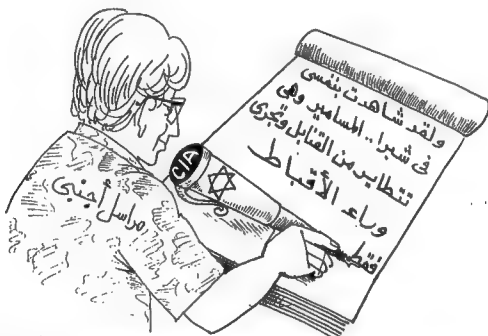 ولقد شاهدت بنفسى
فى شبرا.. المسامير وهى
تتطاير من القنابل وتجرى
وراء الأقباط
فقط
CIA
مراسل أجنبى